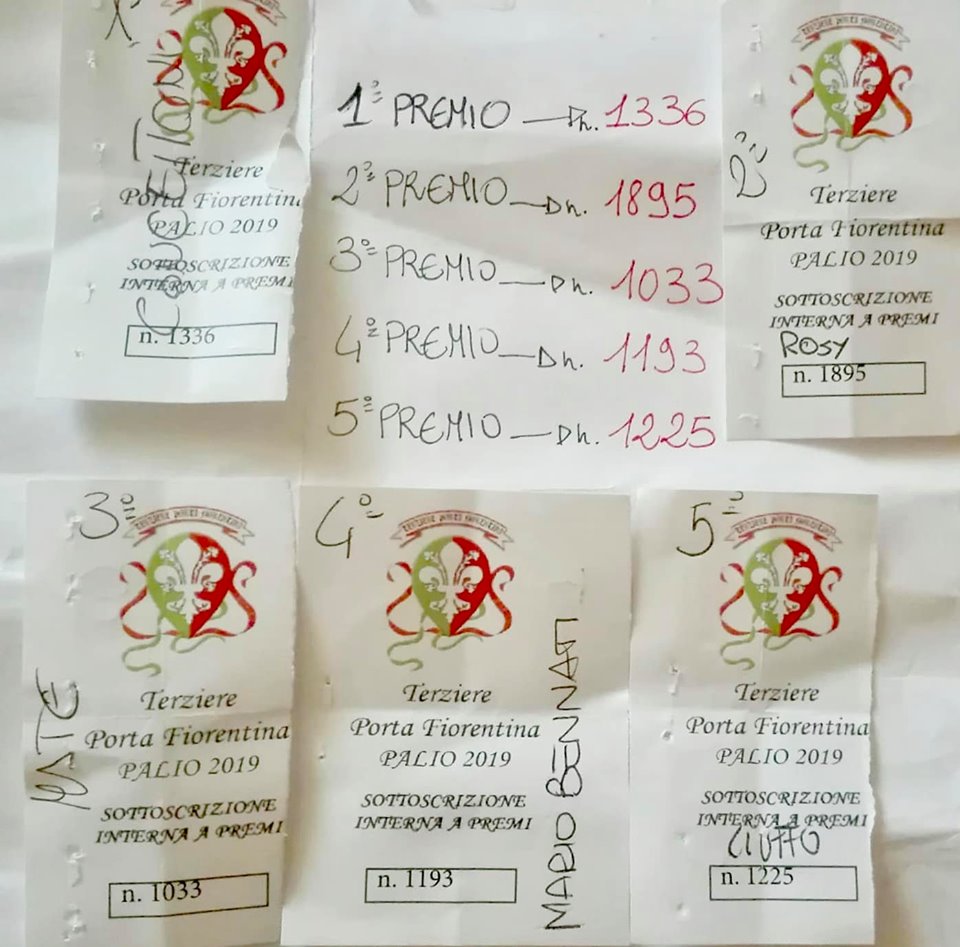 1º
Terziere
Porta Fiorentina
PALIO 2019
SOTTOSCRIZIONE
INTERNA A PREMI
n. 1336
1º PREMIO n. 1336
2º PREMIO n. 1895
3º PREMIO n. 1033
4º PREMIO n. 1193
5º PREMIO n. 1225
2º
Terziere
Porta Fiorentina
PALIO 2019
SOTTOSCRIZIONE
INTERNA A PREMI
ROSY
n. 1895
3º
Terziere
Porta Fiorentina
PALIO 2019
SOTTOSCRIZIONE
INTERNA A PREMI
n. 1033
4º
Terziere
Porta Fiorentina
PALIO 2019
SOTTOSCRIZIONE
INTERNA A PREMI
n. 1193
MARIO BENNATI
5º
Terziere
Porta Fiorentina
PALIO 2019
SOTTOSCRIZIONE
INTERNA A PREMI
CIUFFO
n. 1225